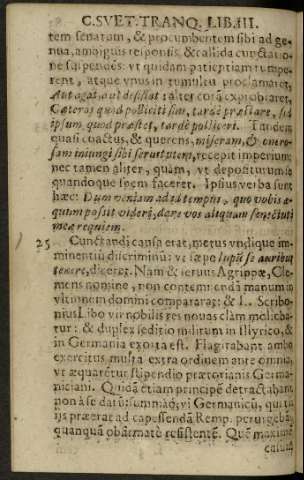 C. SVET. TRANQ. LIB. III.
tem senatum, & procumbentem sibi ad ge-
nua, ambiguis responsis, & callida cunctatio-
ne suspendēs: vt quidam patientiam rumpe-
rent, atque vnus in tumultu proclamaret,
Aut agat, aut desistat: alter corā exprobraret,
Cæteros quod polliciti sint, tardè præstare, sed
ipsum quod præstet, tardè polliceri. Tandem
quasi coactus, & querens, miseram, & onero-
sam iniungi sibi seruitutem, recepit imperium:
nec tamen aliter, quàm, vt depositurum se
quandoque spem faceret. Ipsius verba sunt
hæc: Dum veniam ad id tempus, quo vobis æ-
quum possit videri, dare vos aliquam senectuti
meæ requiem.
25 Cunctandi causa erat, metus vndique im-
minentiū discriminū: vt sæpe lupū se auribus
tenere, diceret. Nam & seruus Agrippæ, Cle-
mens nomine, non contemnenda manum in
vltionem domini compararat: & L. Scribo-
nius Libo vir nobilis res nouas clàm molieba-
tur: & duplex seditio militum in Illyrico, &
in Germania exorta est. Flagitabant ambo
exercitus multa extra ordinem ante omnia,
vt æquarētur stipendio prætorianis Germa-
niciani. Quidā etiam principē detractabant
non à se datū: summaq; vi Germanicū, qui tū
ijs præerat ad capessendā Remp. perurgebāt,
quanquā obfirmatè resistentē. Quē maximè
casum